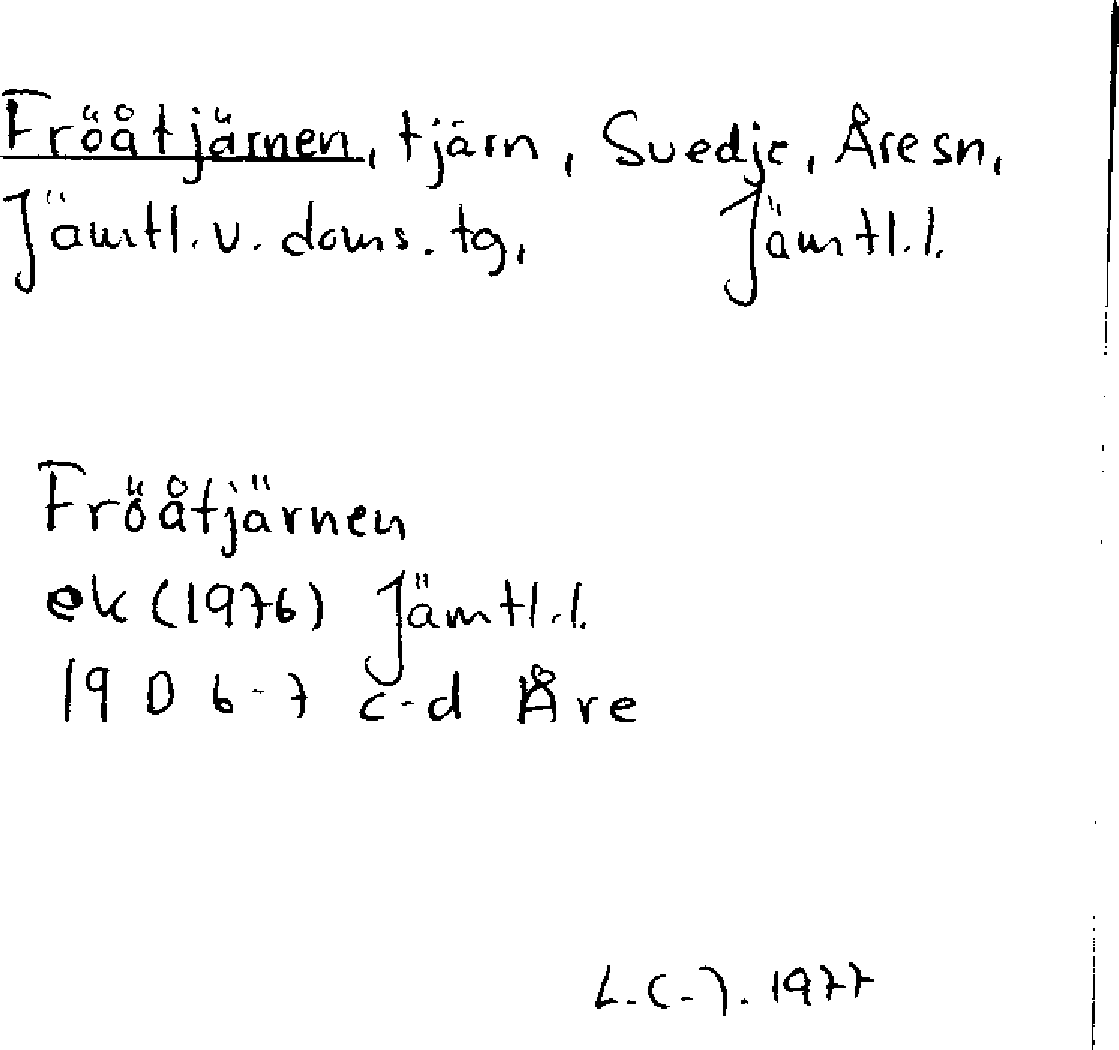 Fröåtjärnen, tjärn, Svedje, Åre sn,
Jämtl. v. doms. tg, Jämtl. l.
Fröåtjärnen
ek (1976) Jämtl. l.
19 D 6-7 c-d Åre
L.C-J. 1977